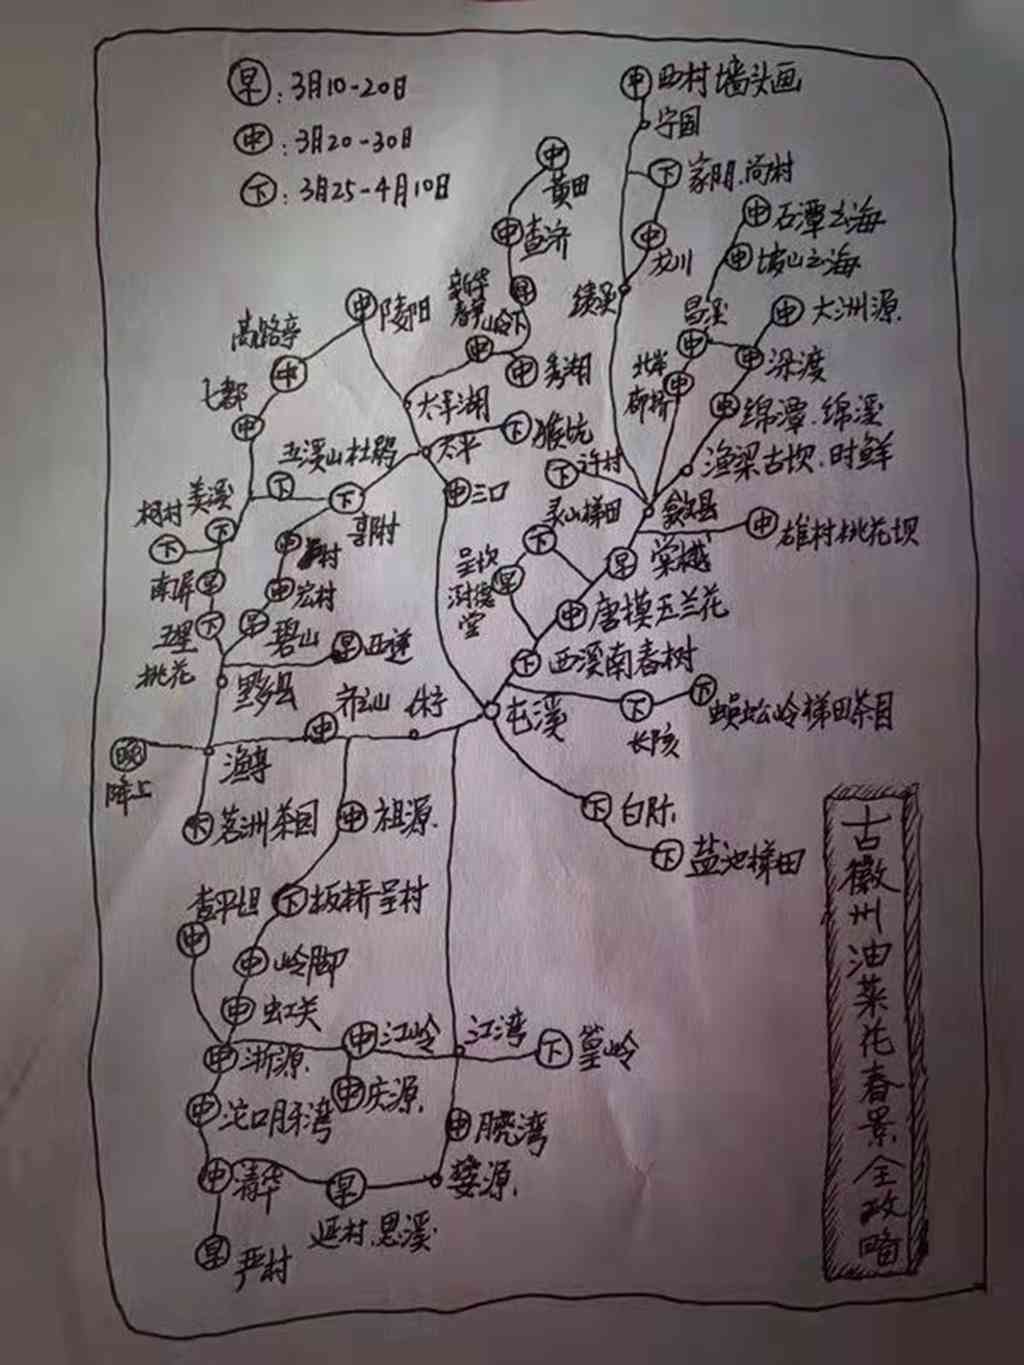 早：3月10-20日
中：3月20-30日
下：3月25-4月10日
中 西村墙头画
宁国
下 家朋.尚村
中 龙川
绩溪
中 黄田
中 查济
早
中 石潭云海
中 坡山云海
昌溪
中
中 大洲源
中 深渡
北岸
中
中 绵潭.绵溪
渔梁古坝.时鲜
中 陵阳
中
七都
中
中
岭下
中 秀湖
太平湖
太平
下 猴坑
中 三口
下 许村
歙县
中 雄村桃花坝
灵山梯田
下
早 棠樾
呈坎
早
中 唐模玉兰花
下 西溪南春树
屯溪
下
长陔
下 蜈蚣岭梯田茶园
下
下
美溪
下
柯村
下
南屏
早
中
中 宏村
早 碧山
五里
下
桃花
早 西递
黟县
中
渔亭
晚
降上
下 茗洲茶园
中 祖源
下 白际
下 盐池梯田
中
下 板桥呈村
中 岭脚
中 虹关
中 浙源
中 江岭
江湾
下 篁岭
中 庆源
中 沱口牙湾
中 晓湾
中 清华
早
延村.思溪
婺源
早 严村
古徽州油菜花春景全攻略